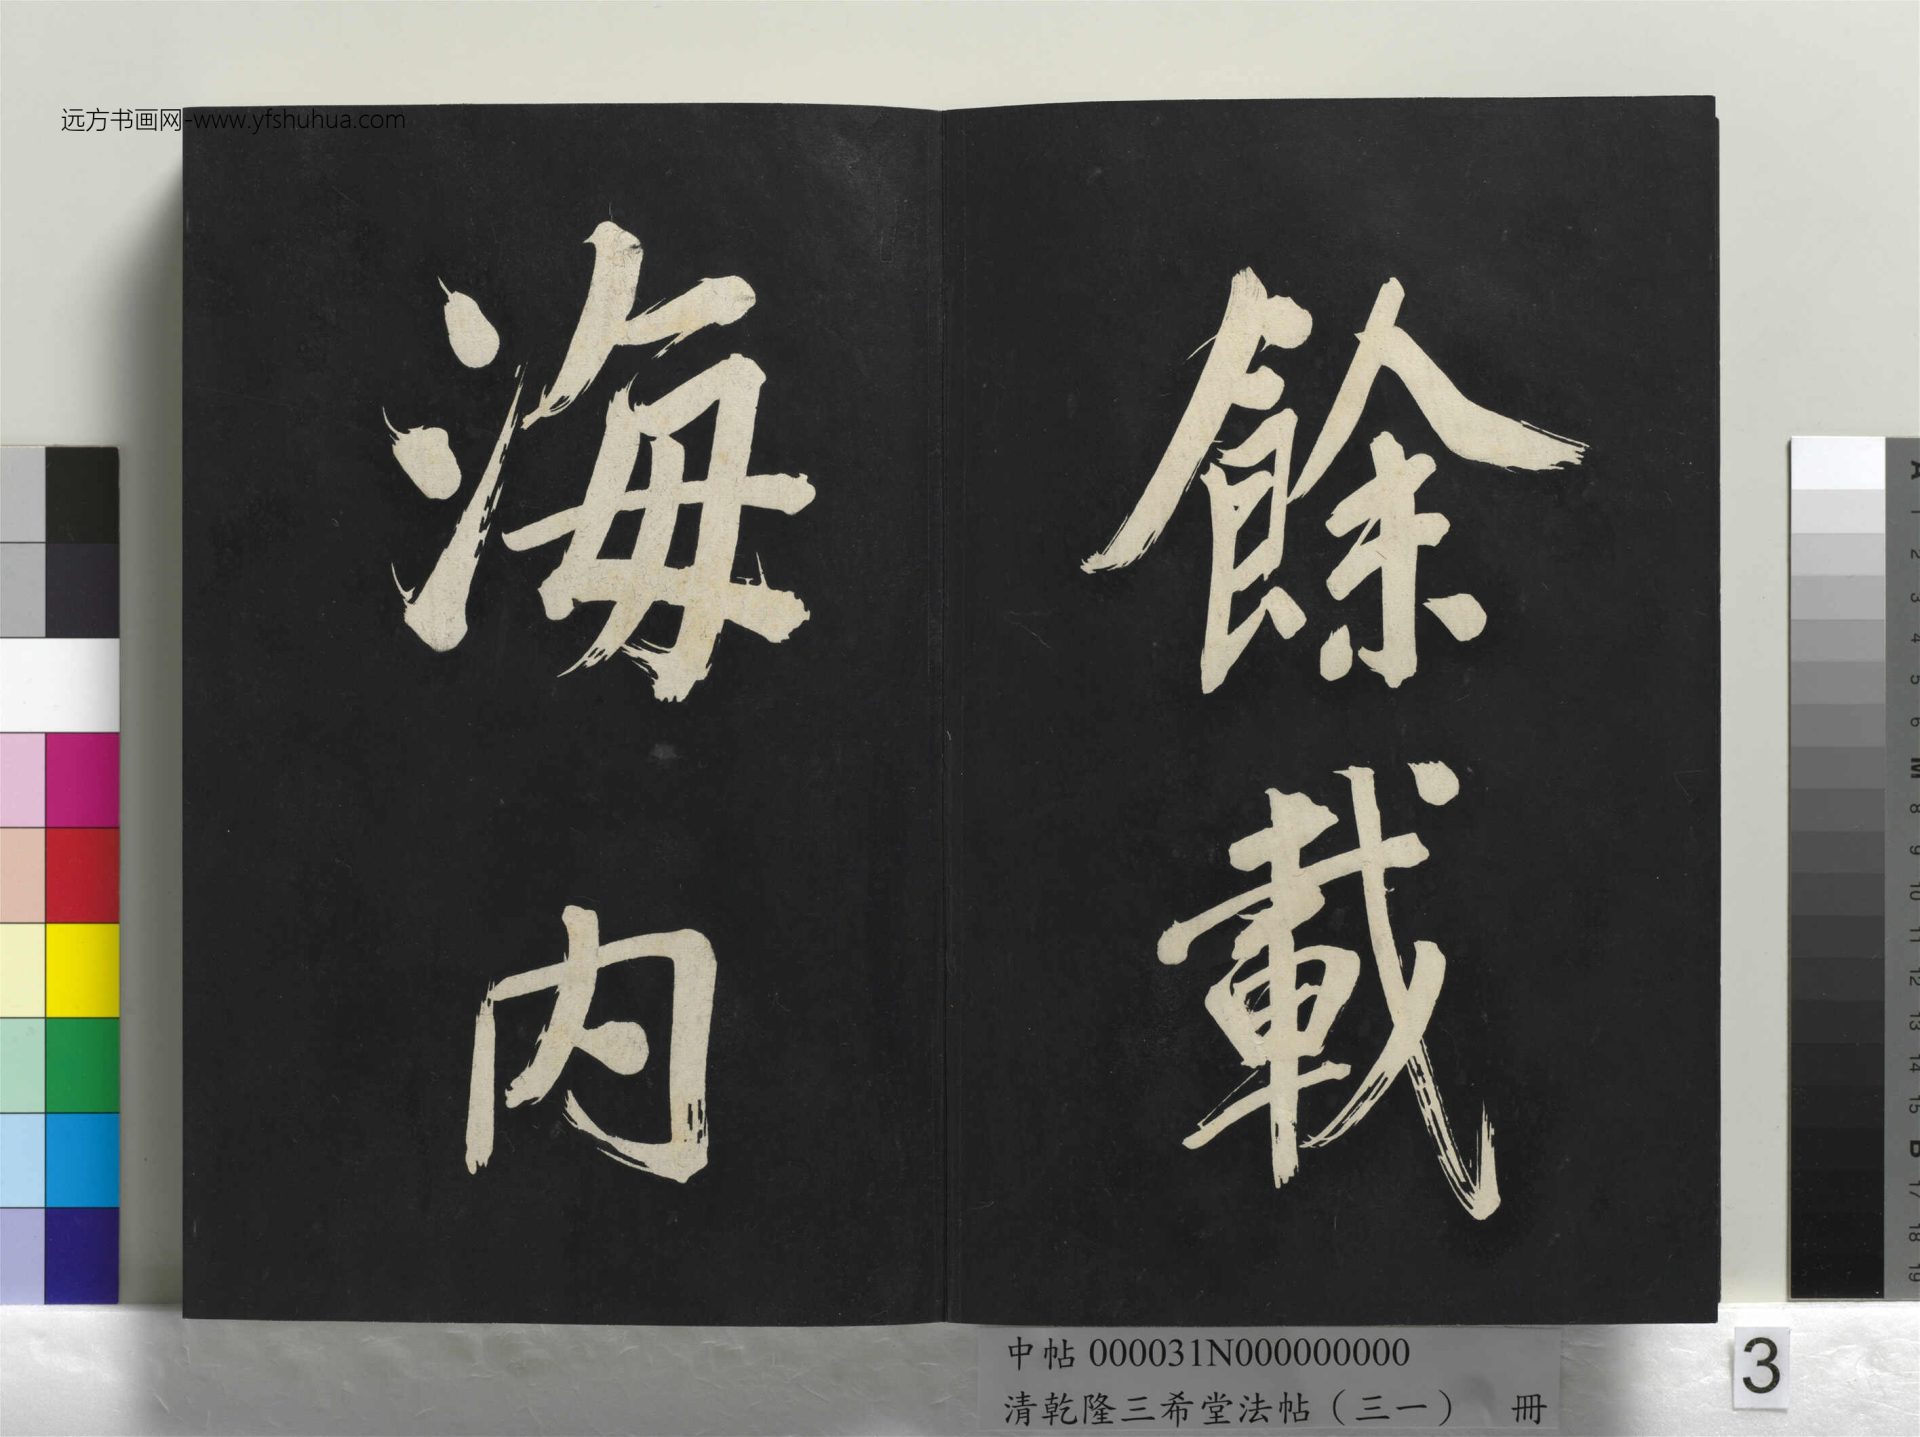 远方书画网-www.yfshuhua.com
餘載
海内
中帖 000031N000000000
清乾隆三希堂法帖（三一） 冊
3
A 1 2 3 4 5 6 M 8 9 10 11 12 13 14 15 B 17 18 19